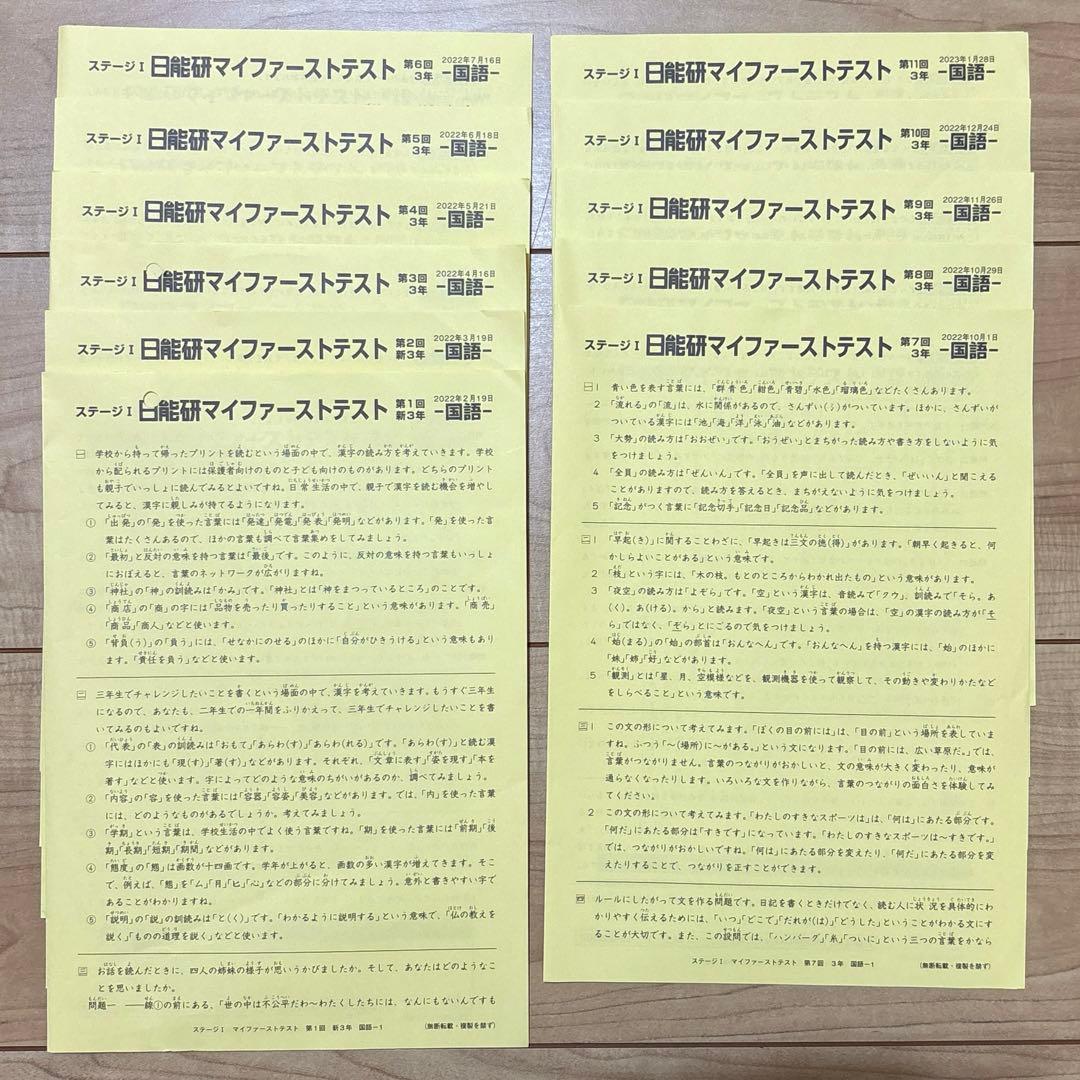 ステージⅠ 日能研マイファーストテスト 第6回 3年 2022年7月16日 -国語-
ステージⅠ 日能研マイファーストテスト 第5回 3年 2022年6月18日 -国語-
ステージⅠ 日能研マイファーストテスト 第4回 3年 2022年5月21日 -国語-
ステージⅠ 日能研マイファーストテスト 第3回 3年 2022年4月16日 -国語-
ステージⅠ 日能研マイファーストテスト 第2回 新3年 2022年3月19日 -国語-
ステージⅠ 日能研マイファーストテスト 第1回 新3年 2022年2月19日 -国語-
一 学校から持って帰ったプリントを読むという場面の中で、漢字の読み方を考えていきます。学校
から配られるプリントには保護者向けのものと子ども向けのものがあります。どちらのプリント
も親子でいっしょに読んでみるとよいですね。日常生活の中で、親子で漢字を読む機会を増やし
てみると、漢字に親しみが持てるようになります。
① 「出発」の「発」を使った言葉には「発達」「発電」「発表」「発明」などがあります。「発」を使った言
葉はたくさんあるので、ほかの言葉も調べて言葉集めをしてみましょう。
② 「最初」と反対の意味を持つ言葉は「最後」です。このように、反対の意味を持つ言葉もいっしょ
におぼえると、言葉のネットワークが広がりますね。
③ 「神社」の「神」の訓読みは「かみ」です。「神社」とは「神をまつっているところ」のことです。
④ 「商店」の「商」の字には「品物を売ったり買ったりすること」という意味があります。「商売」
「商品」「商人」などと使います。
⑤ 「背負(う)」の「負う」には、「せなかにのせる」のほかに「自分がひきうける」という意味もあり
ます。「責任を負う」などと使います。
二 三年生でチャレンジしたいことを書くという場面の中で、漢字を考えていきます。もうすぐ三年生
になるので、あなたも、二年生での一年間をふりかえって、三年生でチャレンジしたいことを書
いてみるのもよいですね。
① 「代表」の「表」の訓読みは「おもて」「あらわ(す)」「あらわ(れる)」です。「あらわ(す)」と読む漢
字にはほかにも「現(す)」「著(す)」などがあります。それぞれ、「文章に表す」「姿を現す」「本を
著す」などと使います。字によってどのような意味のちがいがあるのか、調べてみましょう。
② 「内容」の「容」を使った言葉には「容器」「容姿」「美容」などがあります。では、「内」を使った言葉
には、どのようなものがあるでしょうか。考えてみましょう。
③ 「学期」という言葉は、学校生活の中でよく使う言葉ですね。「期」を使った言葉には「前期」「後
期」「長期」「短期」「期間」などがあります。
④ 「態度」の「態」は画数が十四画です。学年が上がると、画数の多い漢字が増えてきます。そこ
で、例えば、「態」を「ム」「月」「ヒ」「心」などの部分に分けてみましょう。意外と書きやすい字で
あることがわかりますね。
⑤ 「説明」の「説」の訓読みは「と(く)」です。「わかるように説明する」という意味で、「仏の教えを
説く」「ものの道理を説く」などと使います。
三 お話を読んだときに、四人の姉妹の様子が思いうかびましたか。そして、あなたはどのようなこ
とを思いましたか。
問題一 ――線①の前にある、「世の中は不公平だわ〜わたくしたちには、なんにもないんですも
ステージⅠ マイファーストテスト 第1回 新3年 国語-1 (無断転載・複製を禁ず)
ステージⅠ 日能研マイファーストテスト 第11回 3年 2023年1月28日 -国語-
ステージⅠ 日能研マイファーストテスト 第10回 3年 2022年12月24日 -国語-
ステージⅠ 日能研マイファーストテスト 第9回 3年 2022年11月26日 -国語-
ステージⅠ 日能研マイファーストテスト 第8回 3年 2022年10月29日 -国語-
ステージⅠ 日能研マイファーストテスト 第7回 3年 2022年10月1日 -国語-
一 1 青い色を表す言葉には、「群青色」「紺色」「青碧」「水色」「瑠璃色」などたくさんあります。
2 「流れる」の「流」は、水に関係があるので、さんずい(氵)がついています。ほかに、さんずいが
ついている漢字には「池」「海」「洋」「泳」「油」などがあります。
3 「大勢」の読み方は「おおぜい」です。「おうぜい」とまちがった読み方や書き方をしないように気
をつけましょう。
4 「全員」の読み方は「ぜんいん」です。「全員」を声に出して読んだとき、「ぜいいん」と聞こえる
ことがありますので、読み方を答えるとき、まちがえないように気をつけましょう。
5 「記念」がつく言葉に「記念切手」「記念日」「記念品」などがあります。
二 1 「早起(き)」に関することわざに、「早起きは三文の徳(得)」があります。「朝早く起きると、何
かしらよいことがある」という意味です。
2 「枝」という字には、「木の枝。もとのところからわかれ出たもの」という意味があります。
3 「夜空」の読み方は「よぞら」です。「空」という漢字は、音読みで「クウ」、訓読みで「そら。あ
(く)。あ(ける)。から」と読みます。「夜空」という言葉の場合は、「空」の漢字の読み方が「そ
ら」ではなく、「ぞら」とにごるので気をつけましょう。
4 「始(まる)」の「始」の部首は「おんなへん」です。「おんなへん」を持つ漢字には、「始」のほかに
「妹」「姉」「好」などがあります。
5 「観測」とは「星、月、空模様などを、観測機器を使って観察して、その動きや変わりかたなど
をしらべること」という意味です。
三 1 この文の形について考えてみます。「ぼくの目の前には」は、「目の前」という場所を表していま
すね。ふつう「〜(場所)に〜がある。」という文になります。「目の前には、広い草原だ。」では、
言葉がつながりません。言葉のつながりがおかしいと、文の意味が大きく変わったり、意味が
通らなくなったりします。いろいろな文を作りながら、言葉のつながりの面白さを体験してみ
てください。
2 この文の形について考えてみます。「わたしのすきなスポーツは」は、「何は」にあたる部分です。
「何だ」にあたる部分は「すきです」になっています。「わたしのすきなスポーツは〜すきです。」
では、つながりがおかしいですね。「何は」にあたる部分を変えたり、「何だ」にあたる部分を変
えたりすることで、つながりを正すことができます。
四 ルールにしたがって文を作る問題です。日記を書くときだけでなく、読む人に状況を具体的にわ
かりやすく伝えるためには、「いつ」「どこで」「だれが(は)」「どうした」ということがわかる文にす
ることが大切です。また、この設問では、「ハンバーグ」「糸」「ついに」という三つの言葉をかなら
ステージⅠ マイファーストテスト 第7回 3年 国語-1 (無断転載・複製を禁ず)